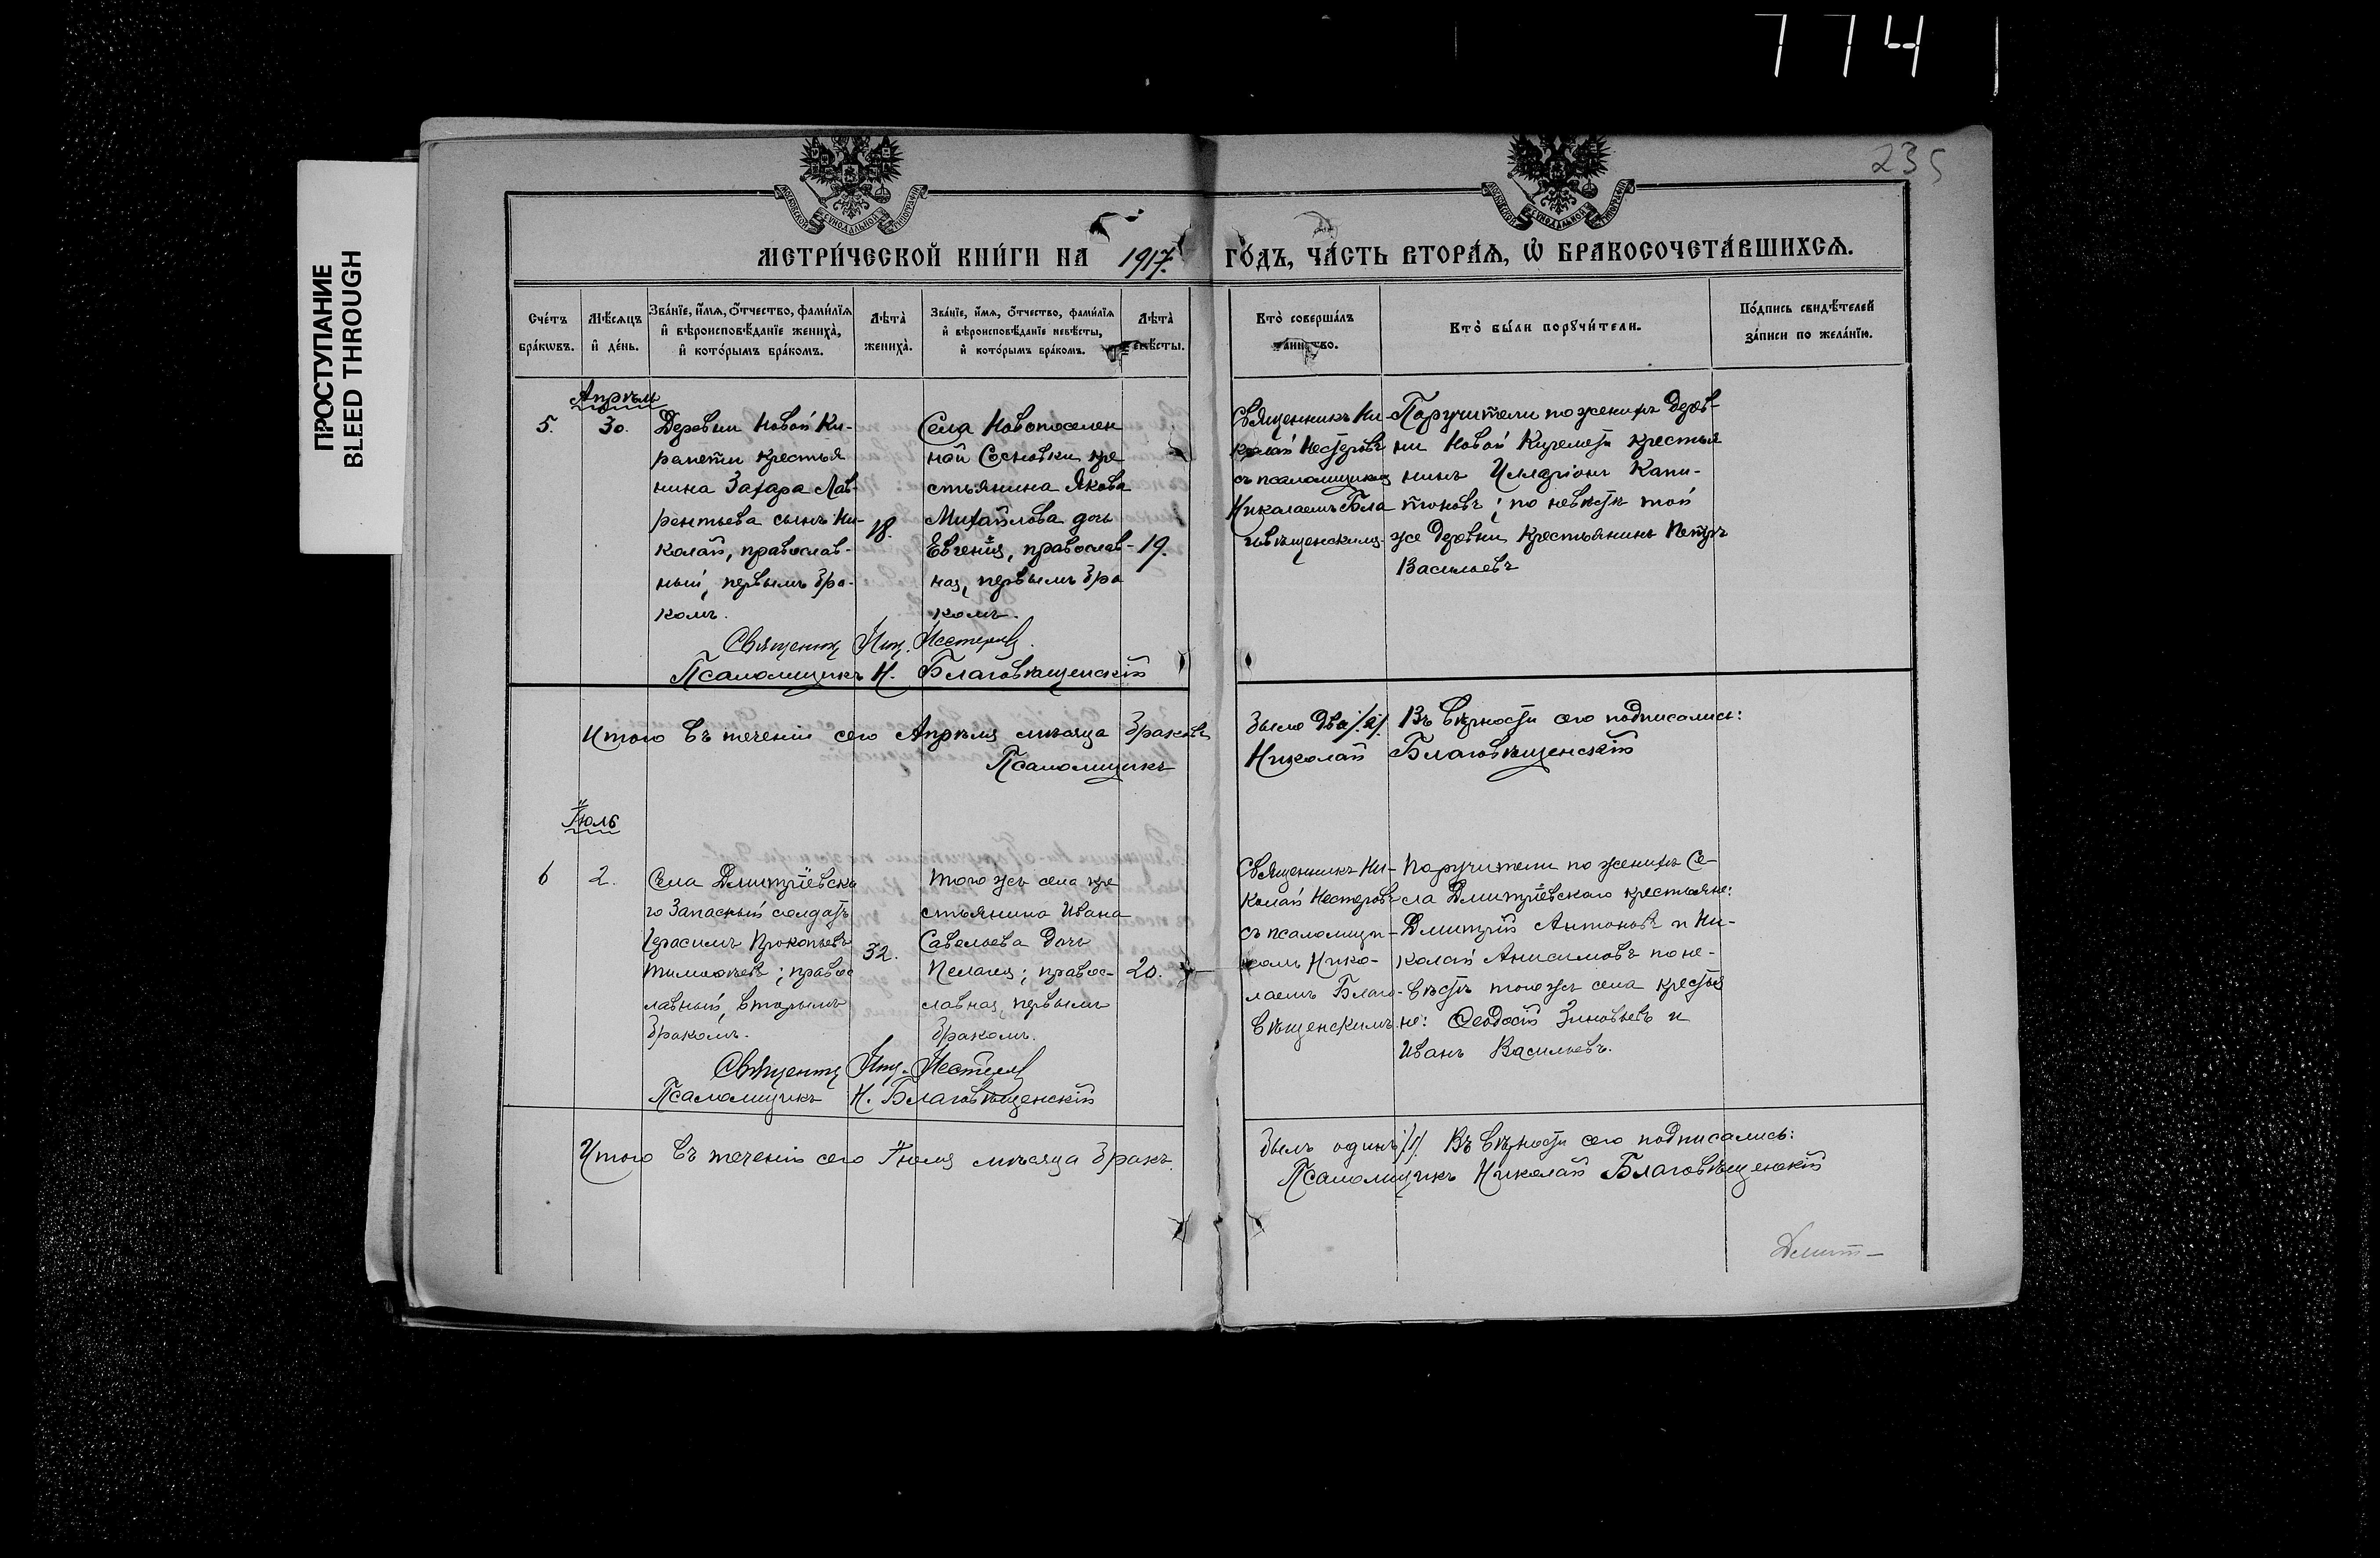 774
235
ПРОСТУПАНИЕ
BLEED THROUGH
МОСКОВСКОЙ СѴНОДАЛЬНОЙ ТИПОГРАФІИ
МОСКОВСКОЙ СѴНОДАЛЬНОЙ ТИПОГРАФІИ
МЕТРИ́ЧЕСКОЙ КНИ́ГИ НА 1917 ГО́ДЪ, ЧА́СТЬ ВТОРА́Ѧ, Ѡ҆ БРАКОСОЧЕТА́ВШИХСѦ.
Сче́тъ
бра́кѡвъ.
Мѣ́сѧцъ
и҆ де́нь.
Зва́нїе, и҆́мѧ, ѻ҆́тчество, фами́лїѧ
и҆ вѣроисповѣ́данїе жениха̀,
и҆ кото́рымъ бра́комъ.
Лѣта̀
жениха̀.
Зва́нїе, и҆́мѧ, ѻ҆́тчество, фами́лїѧ
и҆ вѣроисповѣ́данїе невѣ́сты,
и҆ кото́рымъ бра́комъ.
Лѣта̀
невѣ́сты.
Кто̀ соверша́лъ
та́инство.
Кто̀ бы́ли порꙋчи́тели.
По́дпись свидѣ́телей
за́писи по жела́нїю.
Апрѣль
5.
30.
Деревни Новой Ки-
ремети крестья
нина Захара Лав-
рентьева сынъ Ни-
колай, православ-
ный, первымъ бра-
комъ.
18.
Села Новопоселен
ной Сосновки кре
стьянина Якова
Михайлова дочь
Евгенія, православ-
ная, первымъ бра
комъ.
19.
Священникъ Ни-
колай Нестеровъ
съ псаломщикомъ
Николаемъ Бла
говѣщенскимъ.
Поручители по женихѣ дерев-
ни Новой Киремети крестья
нинъ Илларіонъ Капи-
тоновъ; по невѣстѣ той
же деревни крестьянинъ Петръ
Васильевъ
Священникъ Ник. Нестеровъ
Псаломщикъ Н. Благовѣщенскій
Итого въ теченіи сего Апрѣля мѣсяца браковъ было два /2/. Въ вѣрности сего подписались:
Псаломщикъ Николай Благовѣщенскій
Іюль
6
2.
Села Дмитріевска
го запасный солдатъ
Герасимъ Прокопьевъ
Тимофеевъ; правос
лавный, вторымъ
бракомъ.
32.
Того же села кре
стьянина Ивана
Савельева дочь
Пелагія; правос-
лавная, первымъ
бракомъ.
20.
Священникъ Ни-
колай Нестеровъ
съ псаломщи-
комъ Нико-
лаемъ Благо-
вѣщенскимъ.
Поручители по женихѣ Се-
ла Дмитріевскаго крестьяне:
Дмитрій Антоновъ и Ни-
колай Анисимовъ по не-
вѣстѣ того же села крестья
не: Ѳеодосій Зиновьевъ и
Иванъ Васильевъ.
Священникъ Ник. Нестеровъ
Псаломщикъ Н. Благовѣщенскій
Итого въ теченіи сего Іюля мѣсяца бракъ былъ одинъ /1/. Въ вѣрности сего подписались:
Псаломщикъ Николай Благовѣщенскій
Дмит-